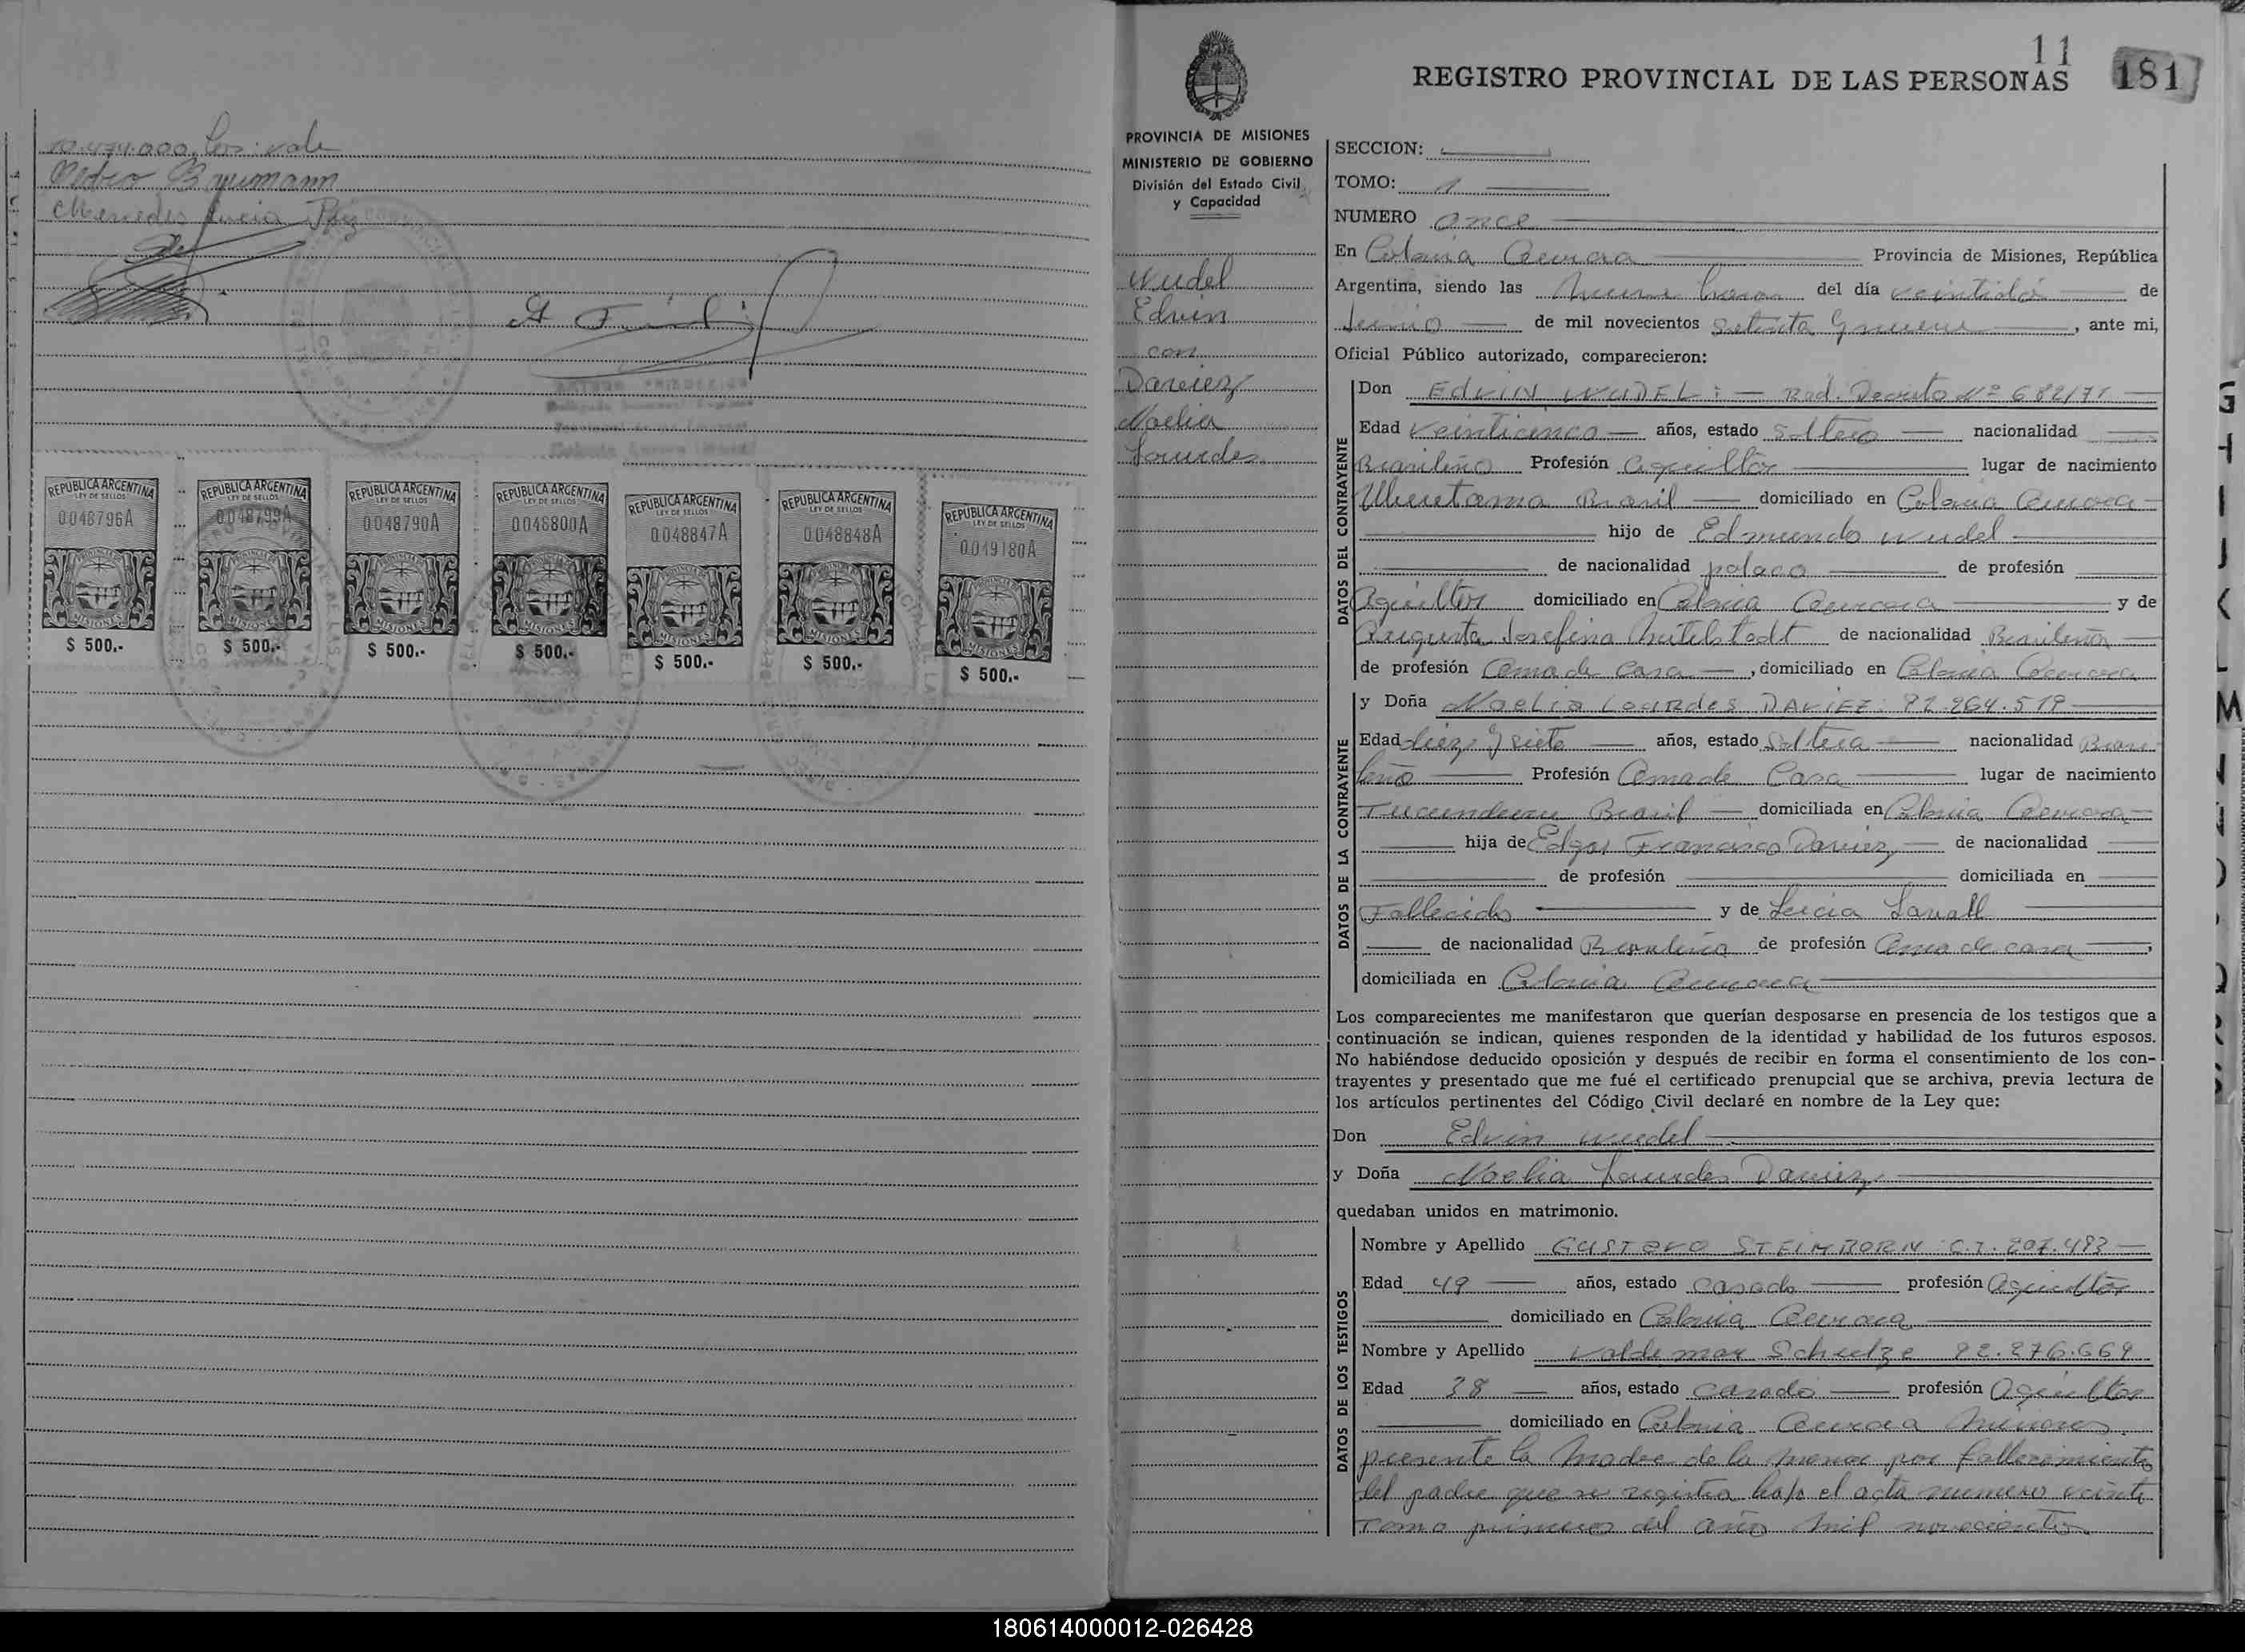 10.474.000. Cor: vale
Pedro Braumann
Mercedes Lucia Paz
REPUBLICA ARGENTINA
LEY DE SELLOS
0048796A
MISIONES
$ 500.-
REPUBLICA ARGENTINA
LEY DE SELLOS
0048799A
MISIONES
$ 500.-
REPUBLICA ARGENTINA
LEY DE SELLOS
0048790A
MISIONES
$ 500.-
REPUBLICA ARGENTINA
LEY DE SELLOS
0048800A
MISIONES
$ 500.-
REPUBLICA ARGENTINA
LEY DE SELLOS
0048847A
MISIONES
$ 500.-
REPUBLICA ARGENTINA
LEY DE SELLOS
0048848A
MISIONES
$ 500.-
REPUBLICA ARGENTINA
LEY DE SELLOS
0049180A
MISIONES
$ 500.-
11
REGISTRO PROVINCIAL DE LAS PERSONAS 181
PROVINCIA DE MISIONES
MINISTERIO DE GOBIERNO
División del Estado Civil
y Capacidad
Wudel
Edvin
con
Daviez
Noelia
Lourdes
SECCION:
TOMO: 1
NUMERO once
En Colonia Aurora Provincia de Misiones, República
Argentina, siendo las nueve horas del día veintidós de
Junio de mil novecientos setenta y nueve, ante mi,
Oficial Público autorizado, comparecieron:
DATOS DEL CONTRAYENTE
Don EDVIN WUDEL: Rad. Decreto Nº 682/71
Edad Veinticinco años, estado soltero nacionalidad
Brasileño Profesión agricultor lugar de nacimiento
Brasil domiciliado en Colonia Aurora
hijo de Edmundo Wudel
de nacionalidad polaco de profesión
agricultor domiciliado en Colonia Aurora y de
Augusta Josefina Mitelstedt de nacionalidad Brasileña
de profesión Ama de casa, domiciliado en Colonia Aurora
DATOS DE LA CONTRAYENTE
y Doña Noelia Lourdes DAVIEZ: 92.264.519
Edad diez y siete años, estado Soltera nacionalidad Brasi-
leña Profesión Ama de Casa lugar de nacimiento
Tucunduva Brasil domiciliada en Colonia Aurora
hija de Edgar Francisco Daviez de nacionalidad
de profesión domiciliada en
Fallecido y de Lucia Lavall
de nacionalidad Brasileña de profesión Ama de casa,
domiciliada en Colonia Aurora
Los comparecientes me manifestaron que querían desposarse en presencia de los testigos que a
continuación se indican, quienes responden de la identidad y habilidad de los futuros esposos.
No habiéndose deducido oposición y después de recibir en forma el consentimiento de los con-
trayentes y presentado que me fué el certificado prenupcial que se archiva, previa lectura de
los artículos pertinentes del Código Civil declaré en nombre de la Ley que:
Don Edvin Wudel
y Doña Noelia Lourdes Daviez
quedaban unidos en matrimonio.
DATOS DE LOS TESTIGOS
Nombre y Apellido GUSTAVO STEIMBORN C.I. 207.483
Edad 49 años, estado casado profesión Agricultor
domiciliado en Colonia Aurora
Nombre y Apellido Valdemar Schulze 92.276.669
Edad 38 años, estado casado profesión Agricultor
domiciliado en Colonia Aurora Misiones
presente la madre de la menor por fallecimiento
del padre que se registra bajo el acta numero veinte
Tomo primero del año mil novecientos
G
H
I
J
K
L
M
180614000012-026428